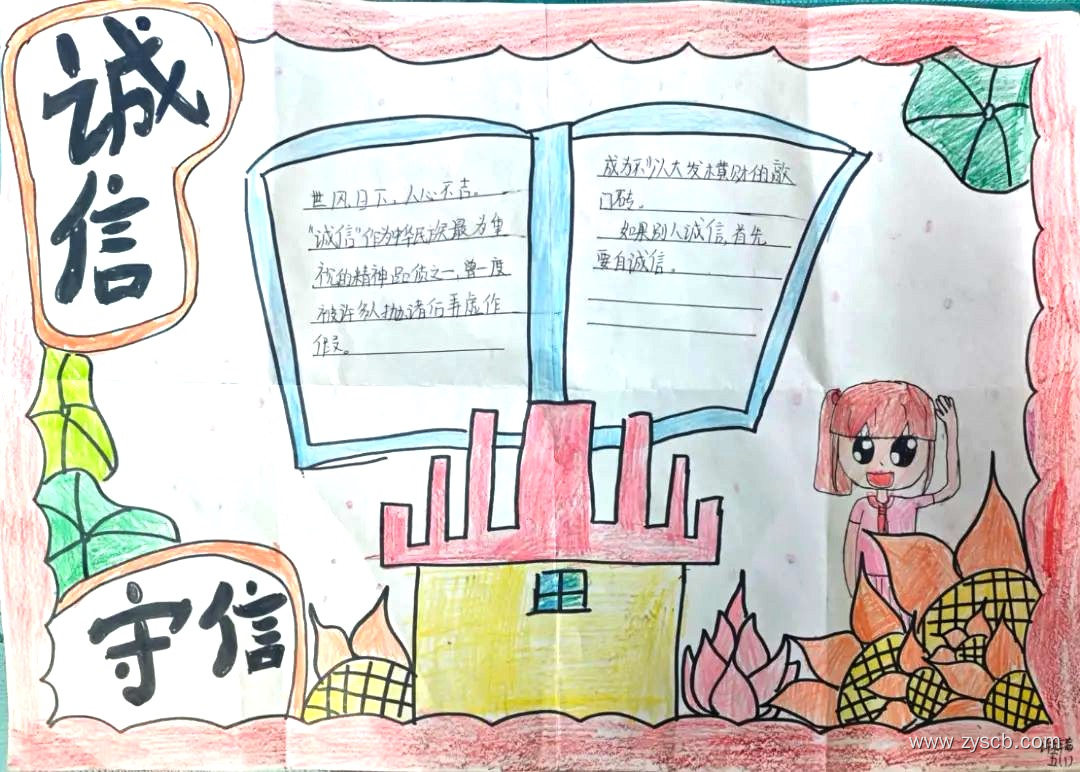 诚
信
世风日下，人心不古。
“诚信”作为中华民族最为重
视的精神品质之一，曾一度
被许多人抛诸后弄虚作
假。
成为不少人大发横财的敲
门砖。
如果别人诚信，首先
要自诚信。
守信
www.zyscb.com
五(1)